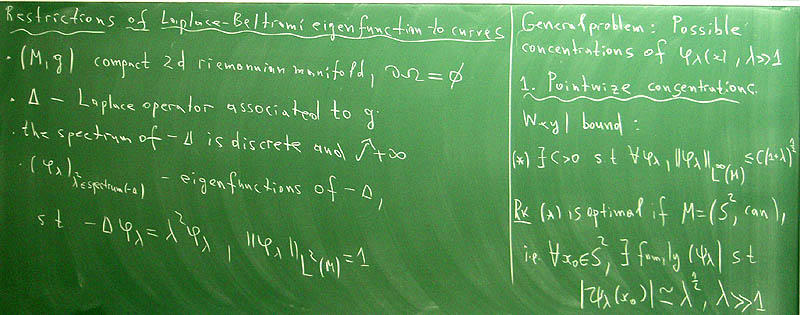 Restrictions of Laplace-Beltrami eigenfunction to curves
· (M, g) compact 2d riemannian manifold, ∂Ω = ∅
· Δ – Laplace operator associated to g.
· the spectrum of -Δ is discrete and ↗ +∞
· (φ_λ)_{λ² ∈ spectrum(-Δ)} – eigenfunctions of -Δ,
s t -Δφ_λ = λ²φ_λ, ||φ_λ||_{L²(M)} = 1
General problem: Possible
concentrations of φ_λ(x), λ>>1
1. Pointwize consentrations.
Weyl bound:
(*) ∃ C>0 s t ∀φ_λ, ||φ_λ||_{L^∞(M)} ≤ C(1+λ)^{1/2}
Rk (*) is optimal if M=(S², can),
i.e. ∀x₀∈S², ∃ family (ψ_λ) s t
|ψ_λ(x₀)| ≃ λ^{1/2}, λ>>1